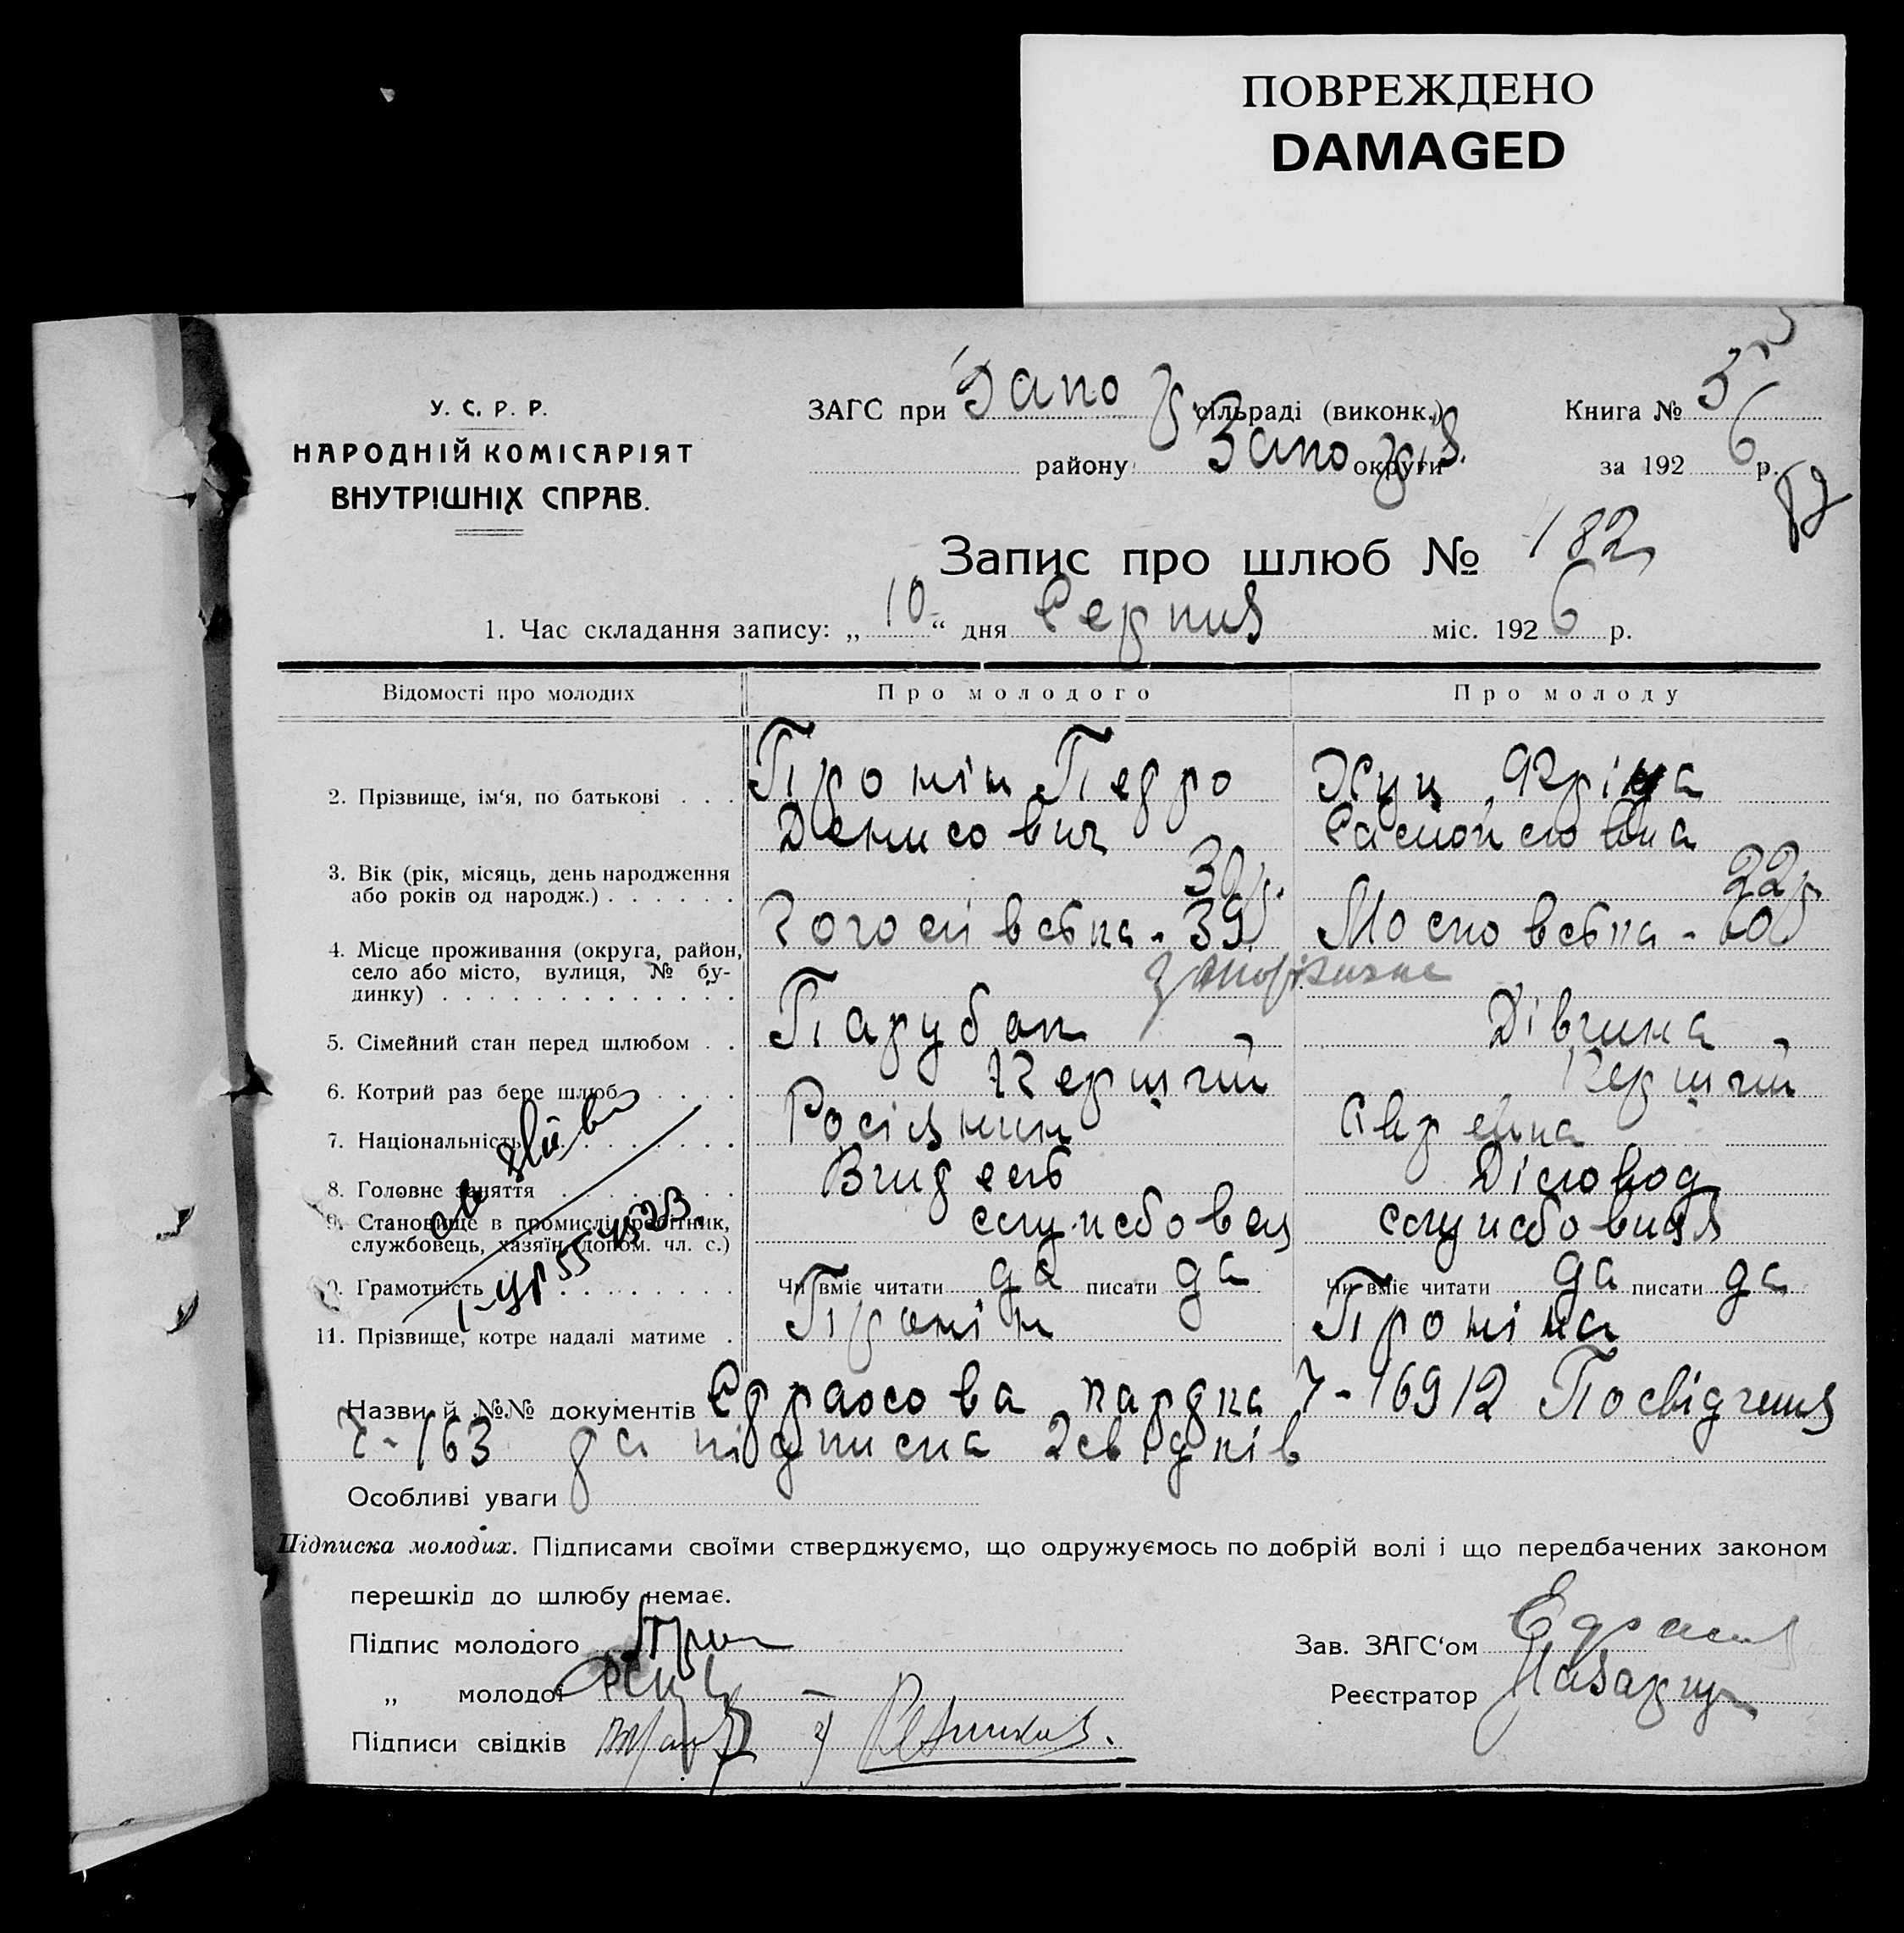 ПОВРЕЖДЕНО
DAMAGED
У. С. Р. Р.
НАРОДНІЙ КОМІСАРІЯТ
ВНУТРІШНІХ СПРАВ.
ЗАГС при Запо сільраді (виконк.) Книга № 5
району Запо округи за 1926 р.
Запис про шлюб № 182
1. Час складання запису: „10“ дня Серпня міс. 1926 р.
Відомості про молодих Про молодого Про молоду
2. Прізвище, ім‘я, по батькові . . . Пронін Педро
Денисович
3. Вік (рік, місяць, день народження 30р. 22р.
або років од народж.) . . . . . .
4. Місце проживання (округа, район, 39 Московська -
село або місто, вулиця, № бу-
динку) . . . . . . . . . . . . .
5. Сімейний стан перед шлюбом . . Парубок Дівчина
6. Котрий раз бере шлюб . . . . Перший Перший
7. Національність . . . . . . . . Росіянин Єврейка
8. Головне заняття . . . . . . . . Вчидель Діловод
9. Становище в промислі (робітник, службовец службовиця
службовець, хазяїн, допом. чл. с.)
10. Грамотність . . . . . . . . Чи вміє читати да писати да Чи вміє читати да писати да
11. Прізвище, котре надалі матиме . Пронін Проніна
Назви й №№ документів картка 7-16912 Посвідчення
ч-163 за підписка 2 свідків
Особливі уваги
Підписка молодих. Підписами своїми стверджуємо, що одружуємось по добрій волі і що передбачених законом
перешкід до шлюбу немає.
Підпис молодого Зав. ЗАГС‘ом
„ молодої Реєстратор
Підписи свідків